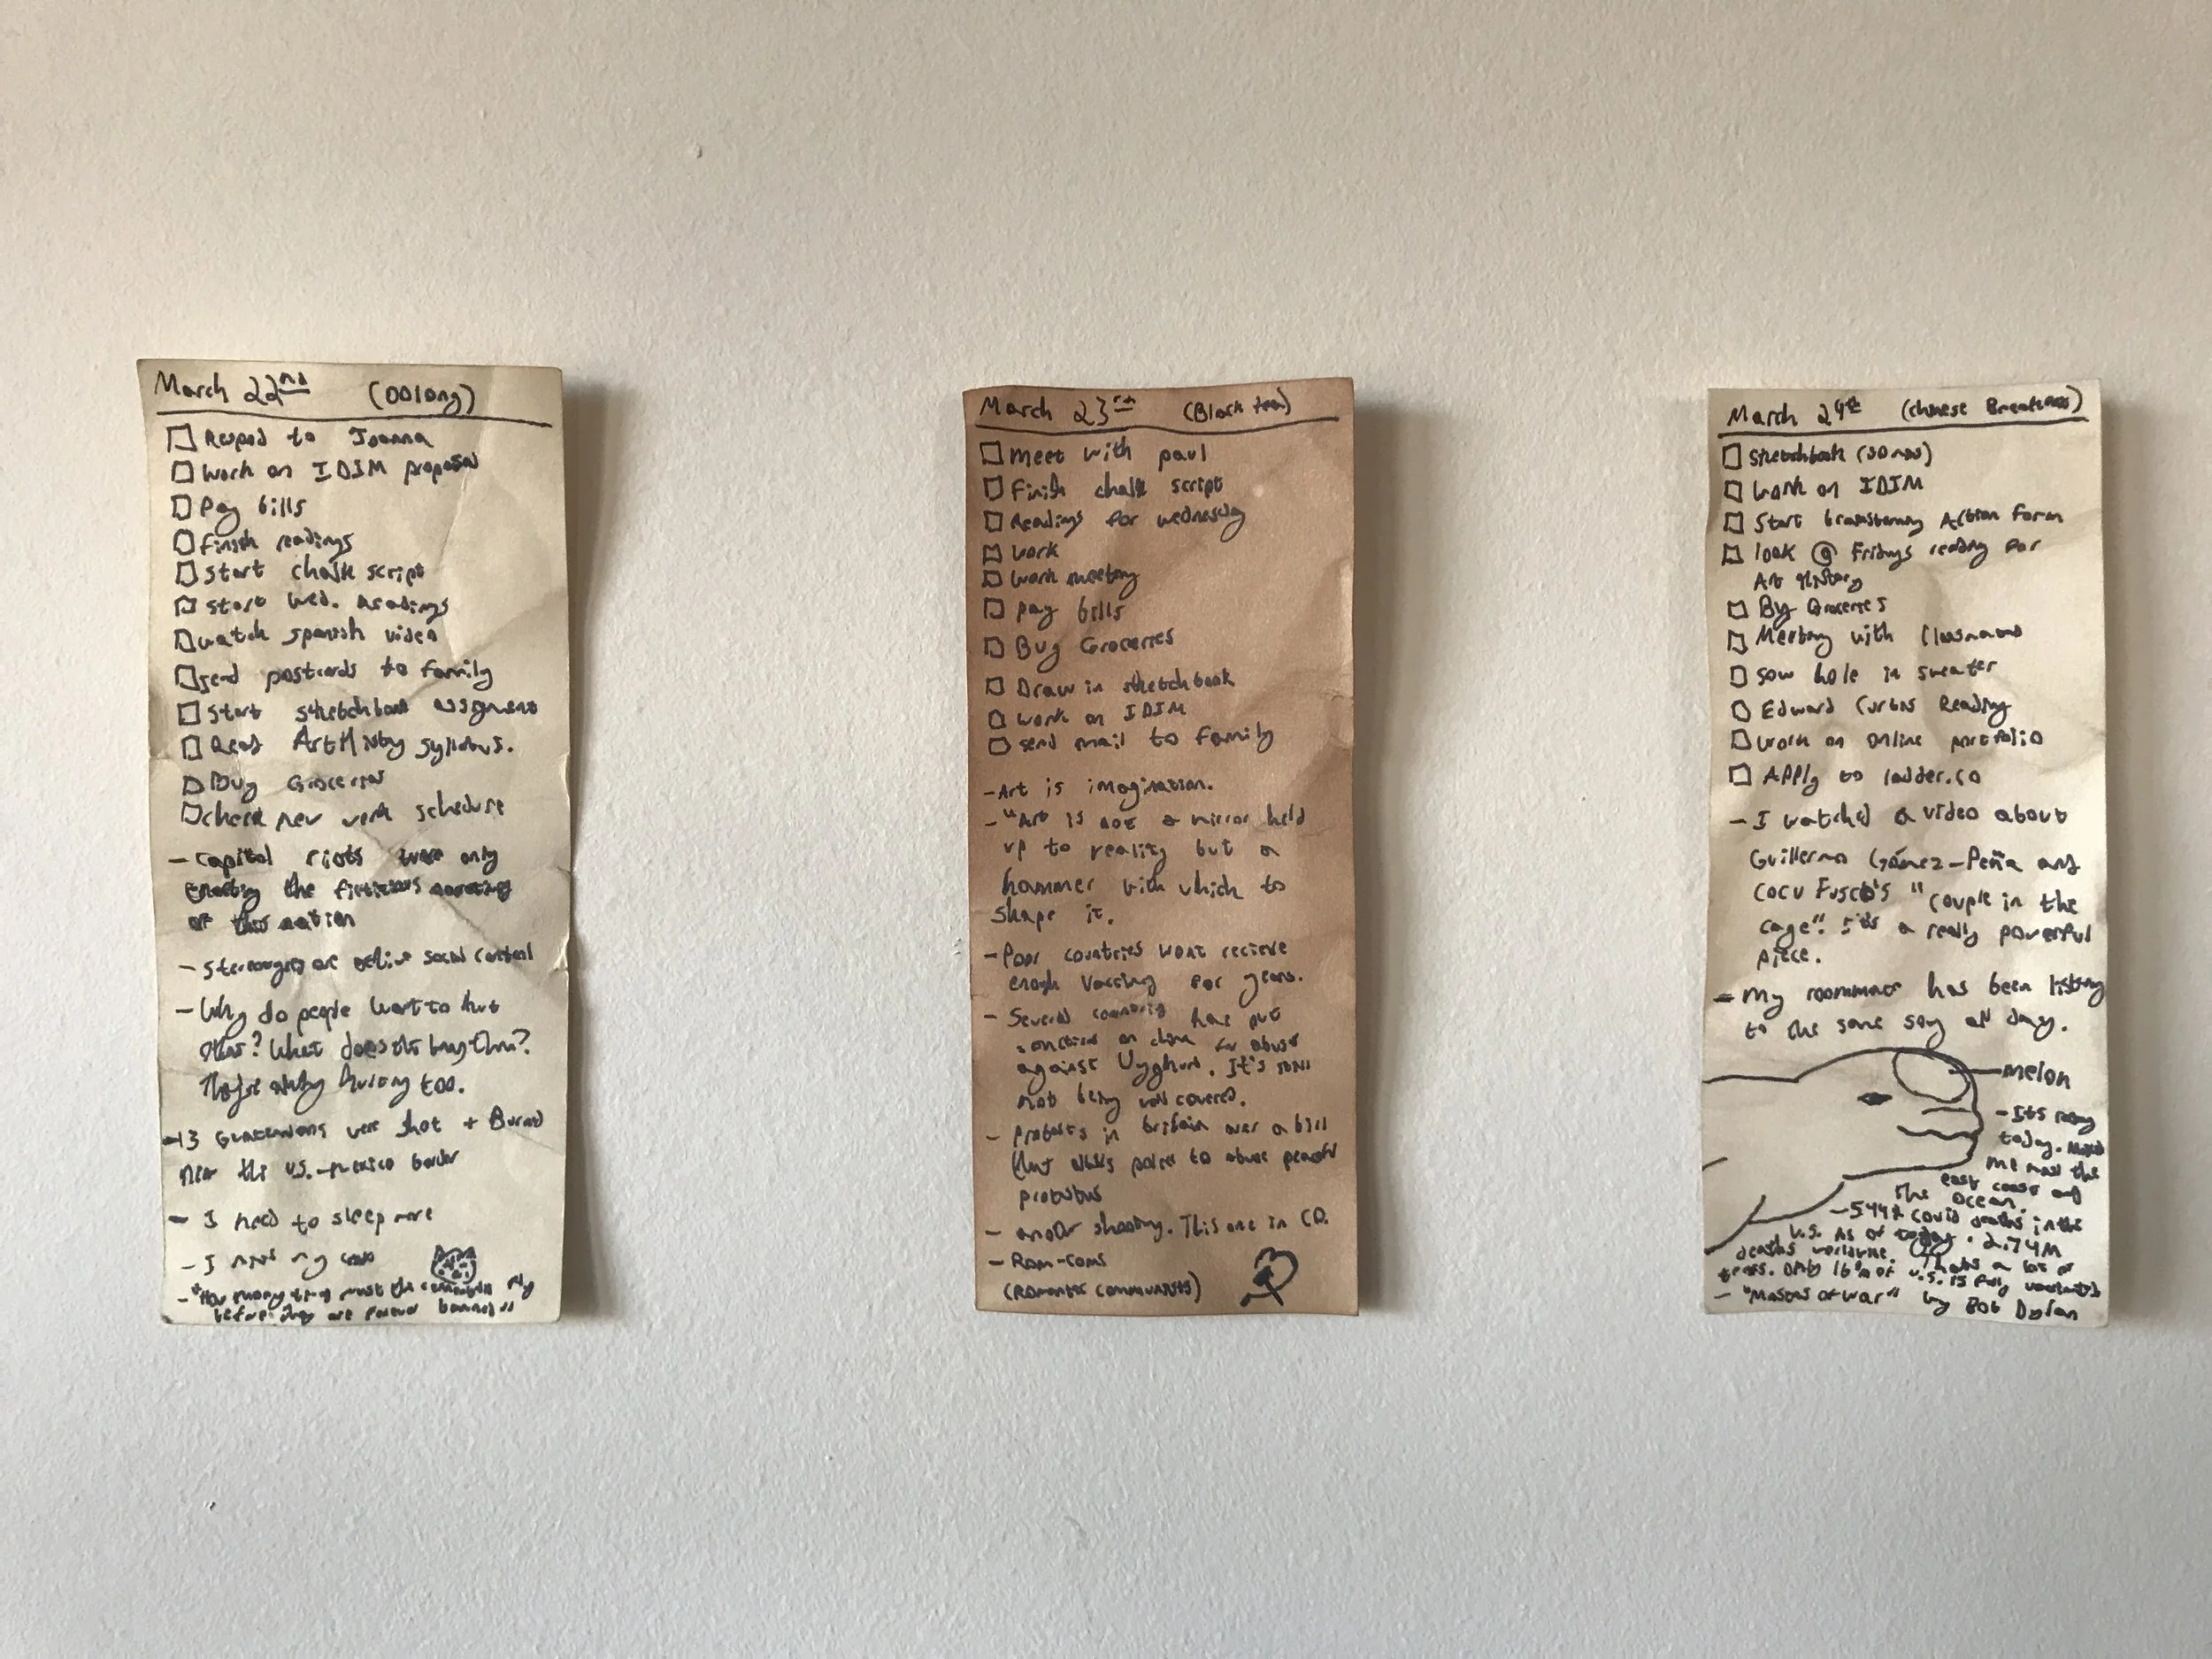 March 22nd (Oolong)
Respod to Joanna
Work on IDIM proposal
Pay bills
Finish readings
Start chalk script
Start Wed. Readings
Watch spanish video
Send postcards to family
Start sketchbook assigment
Read Art History syllabus.
Buy Groceries
check new work schedule
- Capitol riots were only
the ficticious
of this nation
- are active social control
- Why do people want to hurt
What does this bring them?
hurting too.
- 13 were shot + Burned
near the U.S.-Mexico border
- I need to sleep more
- I miss my
- "How many times must the cannonballs fly
before they are forever banned"
March 23rd (Black tea)
Meet with paul
Finish chalk script
Readings for wednesday
Work
Work meeting
pay bills
Buy Groceries
Draw in sketchbook
Work on IDIM
send mail to family
- Art is imagination.
- "Art is not a mirror held
up to reality but a
hammer with which to
shape it.
- Poor countries wont recieve
enogh for years.
- Several has put
on china for abuse
against Uyghurs. It's
not being well covered.
- Protests in britain over a bill
that police to abuse
- another shooting. This one in CO.
- Rom-coms
(Romantic communists)
March 24th (Chinese Breakfast)
Sketchbook
Work on IDIM
Start Action Form
look @ Fridays reading for
Art History
By Groceries
Meeting with
sow hole in sweater
Edward Curtis Reading
Work on online portfolio
Apply to ladder.co
- I watched a video about
Guillermo Gómez-Peña and
Coco Fusco's "couple in the
cage". it's a really powerful
piece.
- My roommate has been
to the same song all day.
melon
- Its rainy
today. Makes
me miss the
east coast and
The ocean.
- 544k covid deaths in the
U.S. As of today. 2.74M
deaths worldwide. Thats a lot of
Only 16% of U.S. is fully
- "Masters of War" by Bob Dylan